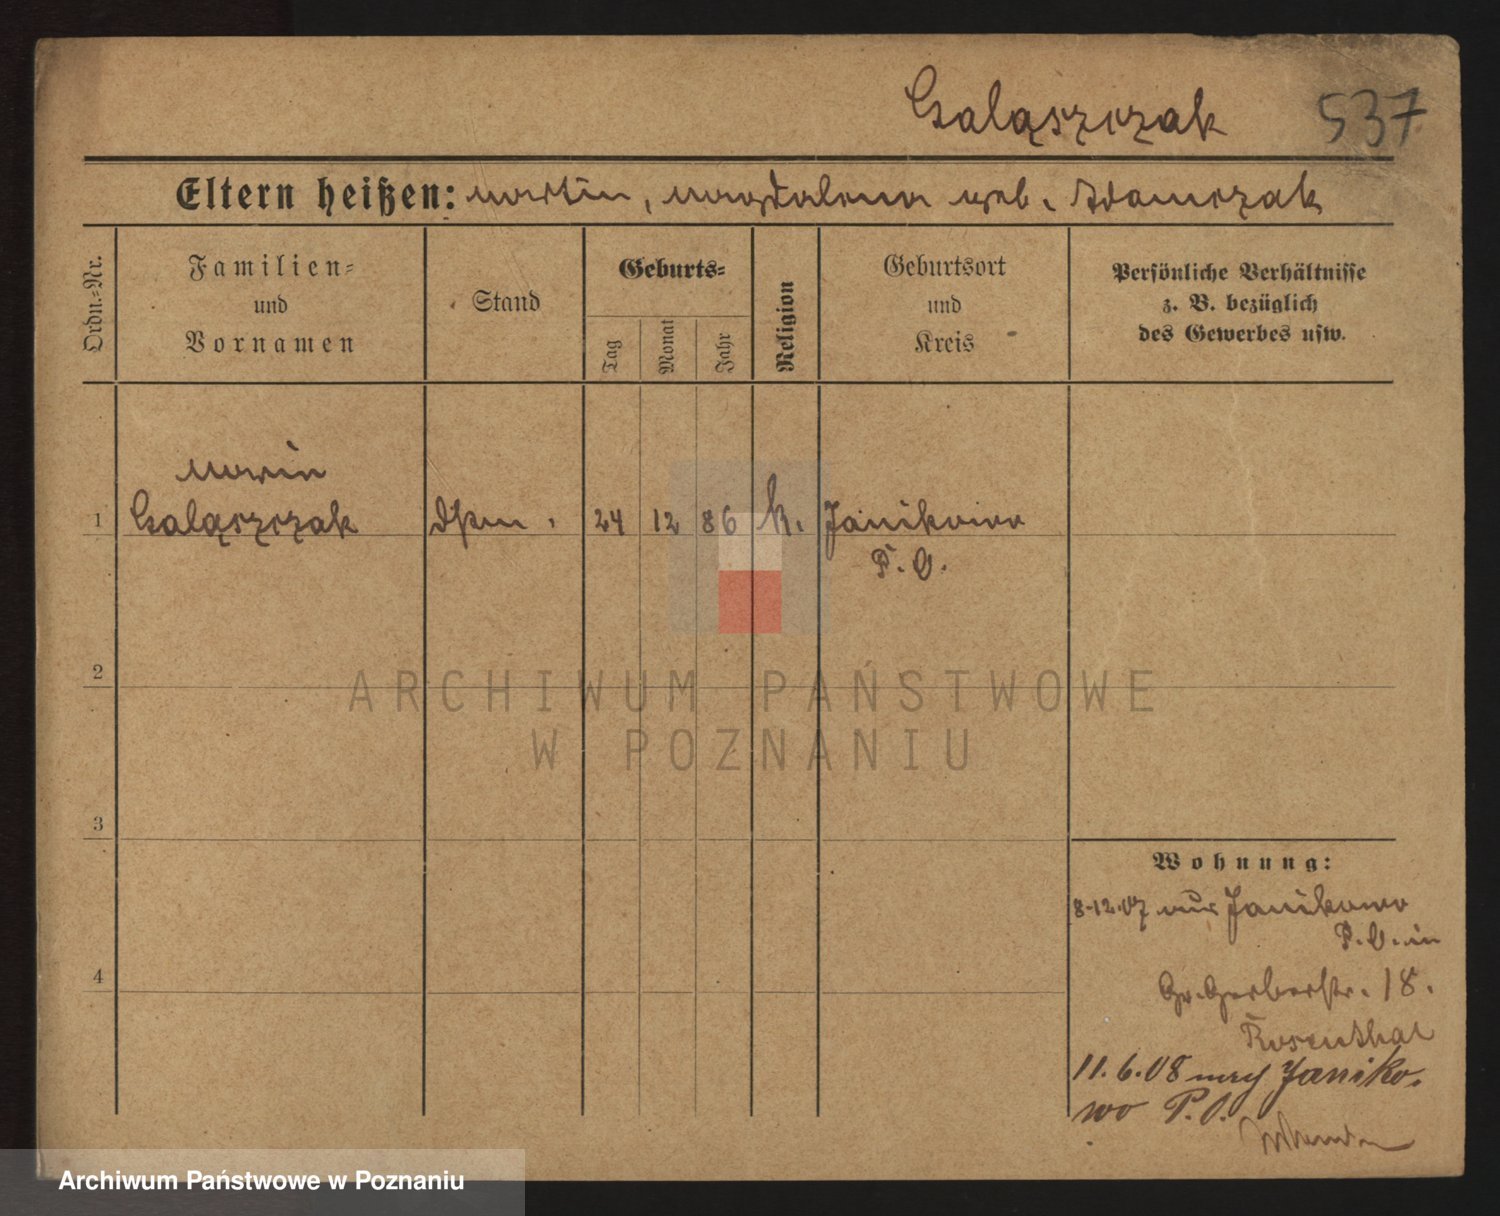 Galąszczak 537
Eltern heißen: Martin, Magdalena geb. Adamczak
Ordn.=Nr.
Familien=
und
Vornamen
Stand
Geburts=
Tag
Monat
Jahr
Religion
Geburtsort
und
Kreis
Persönliche Verhältnisse
z. B. bezüglich
des Gewerbes usw.
Marin
1 Galąszczak 24 12 86 k. Janikowo
P. O.
2
3
4
Wohnung:
8.12.07 aus Janikowo
P. O. in
Gr. Gerberstr. 18.
Rosenthal
11.6.08 nach Janiko.
wo P. O.
ARCHIWUM PAŃSTWOWE
W POZNANIU
Archiwum Państwowe w Poznaniu